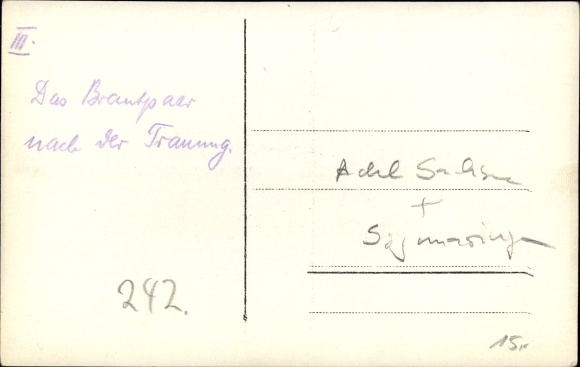 III.
Das Brautpaar
nach der Trauung.
242.
Adel Sachsen
+
Sigmaringen
15,-